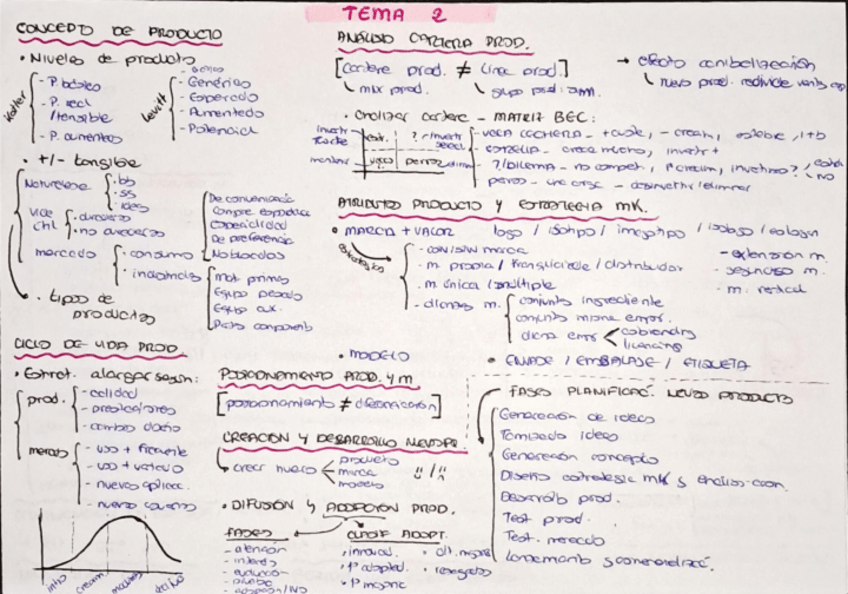 TEMA 2
CONCEPTO DE PRODUCTO
• Niveles de producto
Kotler
- P. básico
- P. real
/tangible
- P. aumentado
Levitt
- Genérico
- Esperado
- Aumentado
- Potencial
• +/- tangible
Naturaleza
• bs
• ss
• ideas
vida
útil
• duradero
• no duradero
mercado
• consumo
De conveniencia
Compra esporádica
Especialidad
De preferencia
No buscados
• industrial
Mat. primas
Equipo pesado
Equipo aux.
Partes componente
• tipos de
productos
CICLO DE VIDA PROD.
• Estrat. alargar según:
prod.
- calidad
- prestaciones
- cambio diseño
mercado
- uso + frecuente
- uso + variado
- nuevas aplicac.
- nuevos usuarios
intro
crecim.
madurez
declive
ANÁLISIS CARTERA PROD.
[cartera prod. ≠ línea prod.]
mix prod.
grupo prod.
→ efecto canibalización
nuevo prod. reduce ventas
• Analizar cartera - MATRIZ BCG:
invertir
fuerte
estr.
? /invertir
select
mantener
vaca
perro
elim
- VACA LECHERA - + cuota, - crecim, estable, I+D
- ESTRELLA - crece mucho, invertir +
- ?/DILEMA - no compet, ↑ crecim, invertimos? /
no
perros - desinvertir/eliminar
ATRIBUTOS PRODUCTO Y ESTRATEGIA MK.
• MARCA + VALOR
logo / isotipo / imagotipo / isologo / eslogan
estrategias
- con/sin marca
- m. propia / franquiciada / distribuidor
- m. única / múltiple
- alianzas m.
conjunto ingrediente
conjunta misma empr.
dicna empr
cobranding
licencing
- extensión m.
- segunda m.
- m. vertical
• MODELO
• ENVASE / EMBALAJE / ETIQUETA
POSICIONAMIENTO PROD. Y M
[posicionamiento ≠ diferenciación]
CREACIÓN Y DESARROLLO NUEVO PR.
crear nuevo
producto
marca
modelo
• DIFUSIÓN Y ADOPCIÓN PROD.
FASES
- atención
- interés
- evaluación
- prueba
- adopción / NO
CLASIF ADOPT.
• innovad.
• 1º adoptad.
• 1ª mayoría
• últ. mayoría
• rezagados
FASES PLANIFICAC. NUEVO PRODUCTO
Generación de ideas
Tamizado ideas
Generación concepto
Diseño estrategia MK y análisis econ
Desarrollo prod.
Test prod.
Test. mercado
Lanzamiento y comercializac.